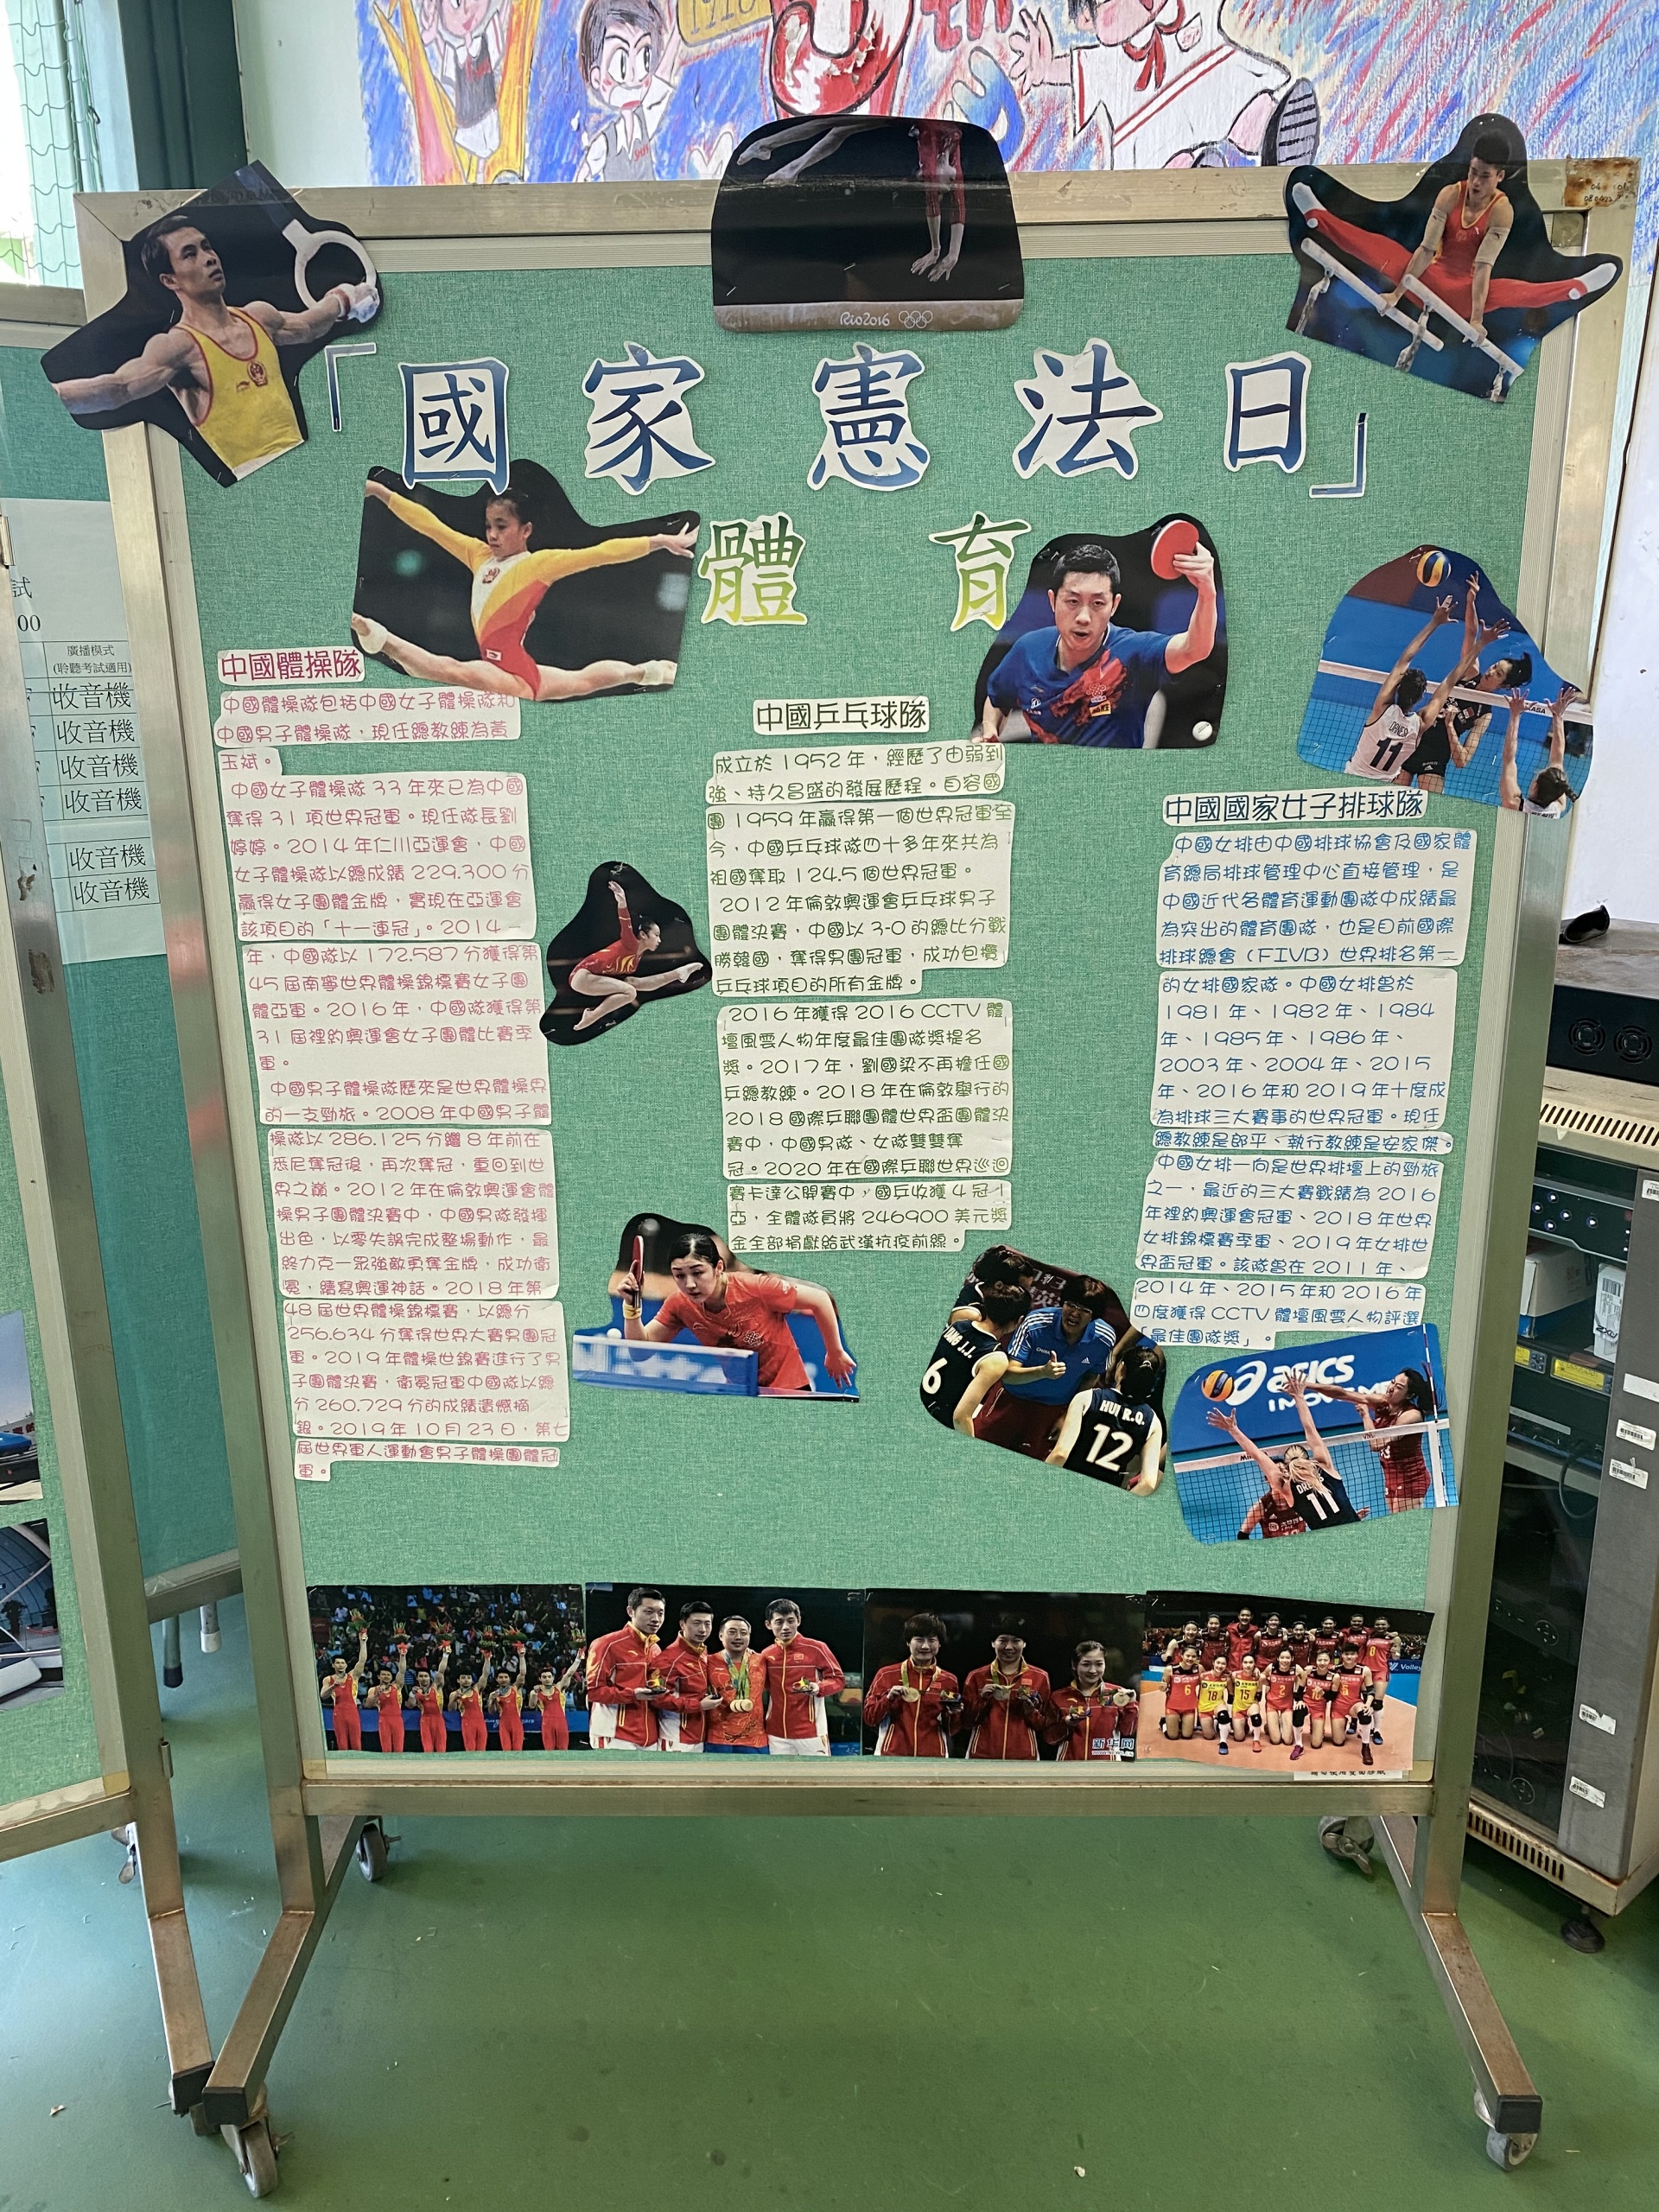 1910
th
Rio2016
「國家憲法日」
體育
中國體操隊
中國體操隊包括中國女子體操隊和
中國男子體操隊，現任總教練為黃
玉斌。
中國女子體操隊 33 年來已為中國
奪得 31 項世界冠軍。現任隊長劉
婷婷。2014 年仁川亞運會，中國
女子體操隊以總成績 229.300 分
贏得女子團體金牌，實現在亞運會
該項目的「十一連冠」。2014
年，中國隊以 172.587 分獲得第
45 屆南寧世界體操錦標賽女子團
體亞軍。2016 年，中國隊獲得第
31 屆裡約奧運會女子團體比賽季
軍。
中國男子體操隊歷來是世界體操界
的一支勁旅。2008 年中國男子體
操隊以 286.125 分繼 8 年前在
悉尼奪冠後，再次奪冠，重回到世
界之巔。2012 年在倫敦奧運會體
操男子團體決賽中，中國男隊發揮
出色，以零失誤完成整場動作，最
終力克一眾強敵勇奪金牌，成功衛
冕，續寫奧運神話。2018 年第
48 屆世界體操錦標賽，以總分
256.634 分奪得世界大賽男團冠
軍。2019 年體操世錦賽進行了男
子團體決賽，衛冕冠軍中國隊以總
分 260.729 分的成績遺憾摘
銀。2019 年 10 月 23 日，第七
屆世界軍人運動會男子體操團體冠
軍。
中國乒乓球隊
成立於 1952 年，經歷了由弱到
強、持久昌盛的發展歷程。自容國
團 1959 年贏得第一個世界冠軍至
今，中國乒乓球隊四十多年來共為
祖國奪取 124.5 個世界冠軍。
2012 年倫敦奧運會乒乓球男子
團體決賽，中國以 3-0 的總比分戰
勝韓國，奪得男團冠軍，成功包攬
乒乓球項目的所有金牌。
2016 年獲得 2016 CCTV 體
壇風雲人物年度最佳團隊獎提名
獎。2017 年，劉國梁不再擔任國
乒總教練。2018 年在倫敦舉行的
2018 國際乒聯團體世界盃團體決
賽中，中國男隊、女隊雙雙奪
冠。2020 年在國際乒聯世界巡迴
賽卡達公開賽中，國乒收獲 4 冠 1
亞，全體隊員將 246900 美元獎
金全部捐獻給武漢抗疫前線。
中國國家女子排球隊
中國女排由中國排球協會及國家體
育總局排球管理中心直接管理，是
中國近代各體育運動團隊中成績最
為突出的體育團隊，也是目前國際
排球總會（FIVB）世界排名第一
的女排國家隊。中國女排曾於
1981 年、1982 年、1984
年、1985 年、1986 年、
2003 年、2004 年、2015
年、2016 年和 2019 年十度成
為排球三大賽事的世界冠軍。現任
總教練是郎平、執行教練是安家傑。
中國女排一向是世界排壇上的勁旅
之一，最近的三大賽戰績為 2016
年裡約奧運會冠軍、2018 年世界
女排錦標賽季軍、2019 年女排世
界盃冠軍。該隊曾在 2011 年、
2014 年、2015 年和 2016 年
四度獲得 CCTV 體壇風雲人物評選
「最佳團隊獎」。
11
6
HUI R.Q.
12
asics
11
新华网
試
00
廣播模式
(聆聽考試適用)
收音機
收音機
收音機
收音機
收音機
收音機